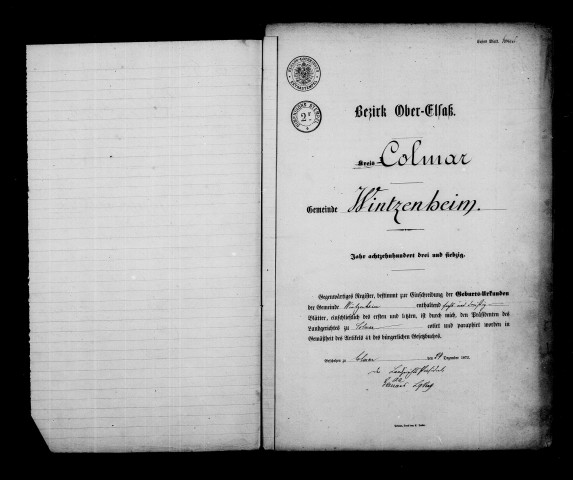 Erstes Blatt.
2
Bezirk Ober-Elsaß.
Kreis Colmar
Gemeinde Wintzenheim.
Jahr achtzehnhundert drei und siebzig.
Gegenwärtiges Register, bestimmt zur Einschreibung der Geburts-Urkunden
der Gemeinde Wintzenheim enthaltend sechs und dreißig
Blätter, einschließlich des ersten und letzten, ist durch mich, den Präsidenten des
Landgerichtes zu Colmar cotirt und paraphirt worden in
Gemäßheit des Artikels 41 des bürgerlichen Gesetzbuches.
Geschehen zu Colmar am Dezember 1872.
Der Landgerichts-Präsident